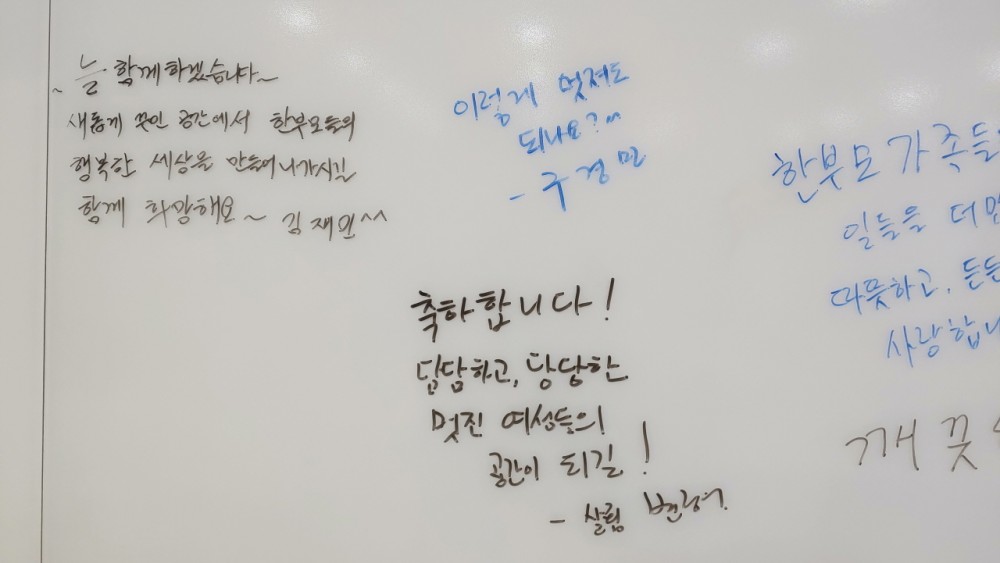 ~ 늘 함께하겠습니다~
새롭게 꾸민 공간에서 한부모들의
행복한 세상을 만들어나가시길
함께 희망해요~ 김재원^^
이렇게 멋져도
되나요?^^
- 구경민
축하합니다!
담담하고, 당당한
멋진 여성들의
공간이 되길!
- 살림
한부모가족들
일들을 더
따뜻하고, 든든
사랑합니
깨끗